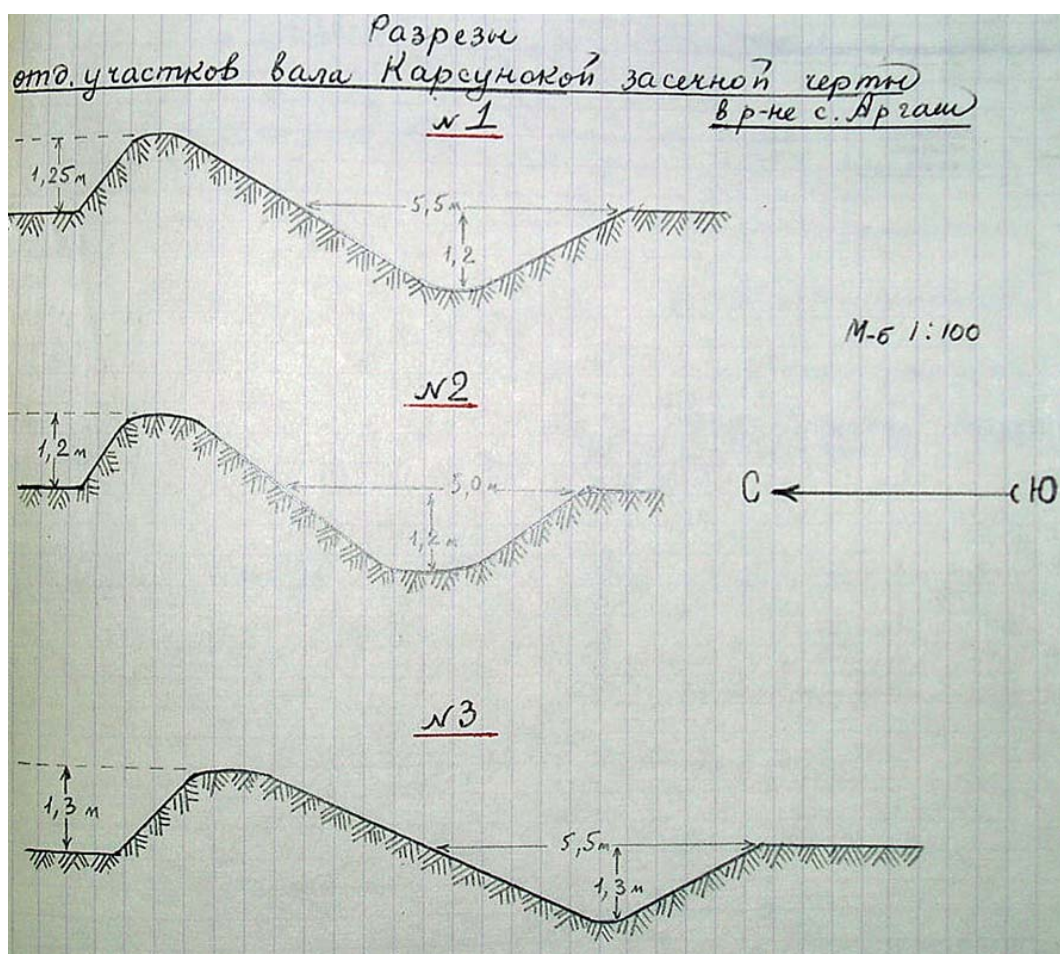 Разрезы
отд. участков вала Карсунской засечной черты
в р-не с. Аргаш
№1
1,25 м
5,5 м
1,2
М-б 1:100
№2
1,2 м
5,0 м
1,2 м
С Ю
№3
1,3 м
5,5 м
1,3 м